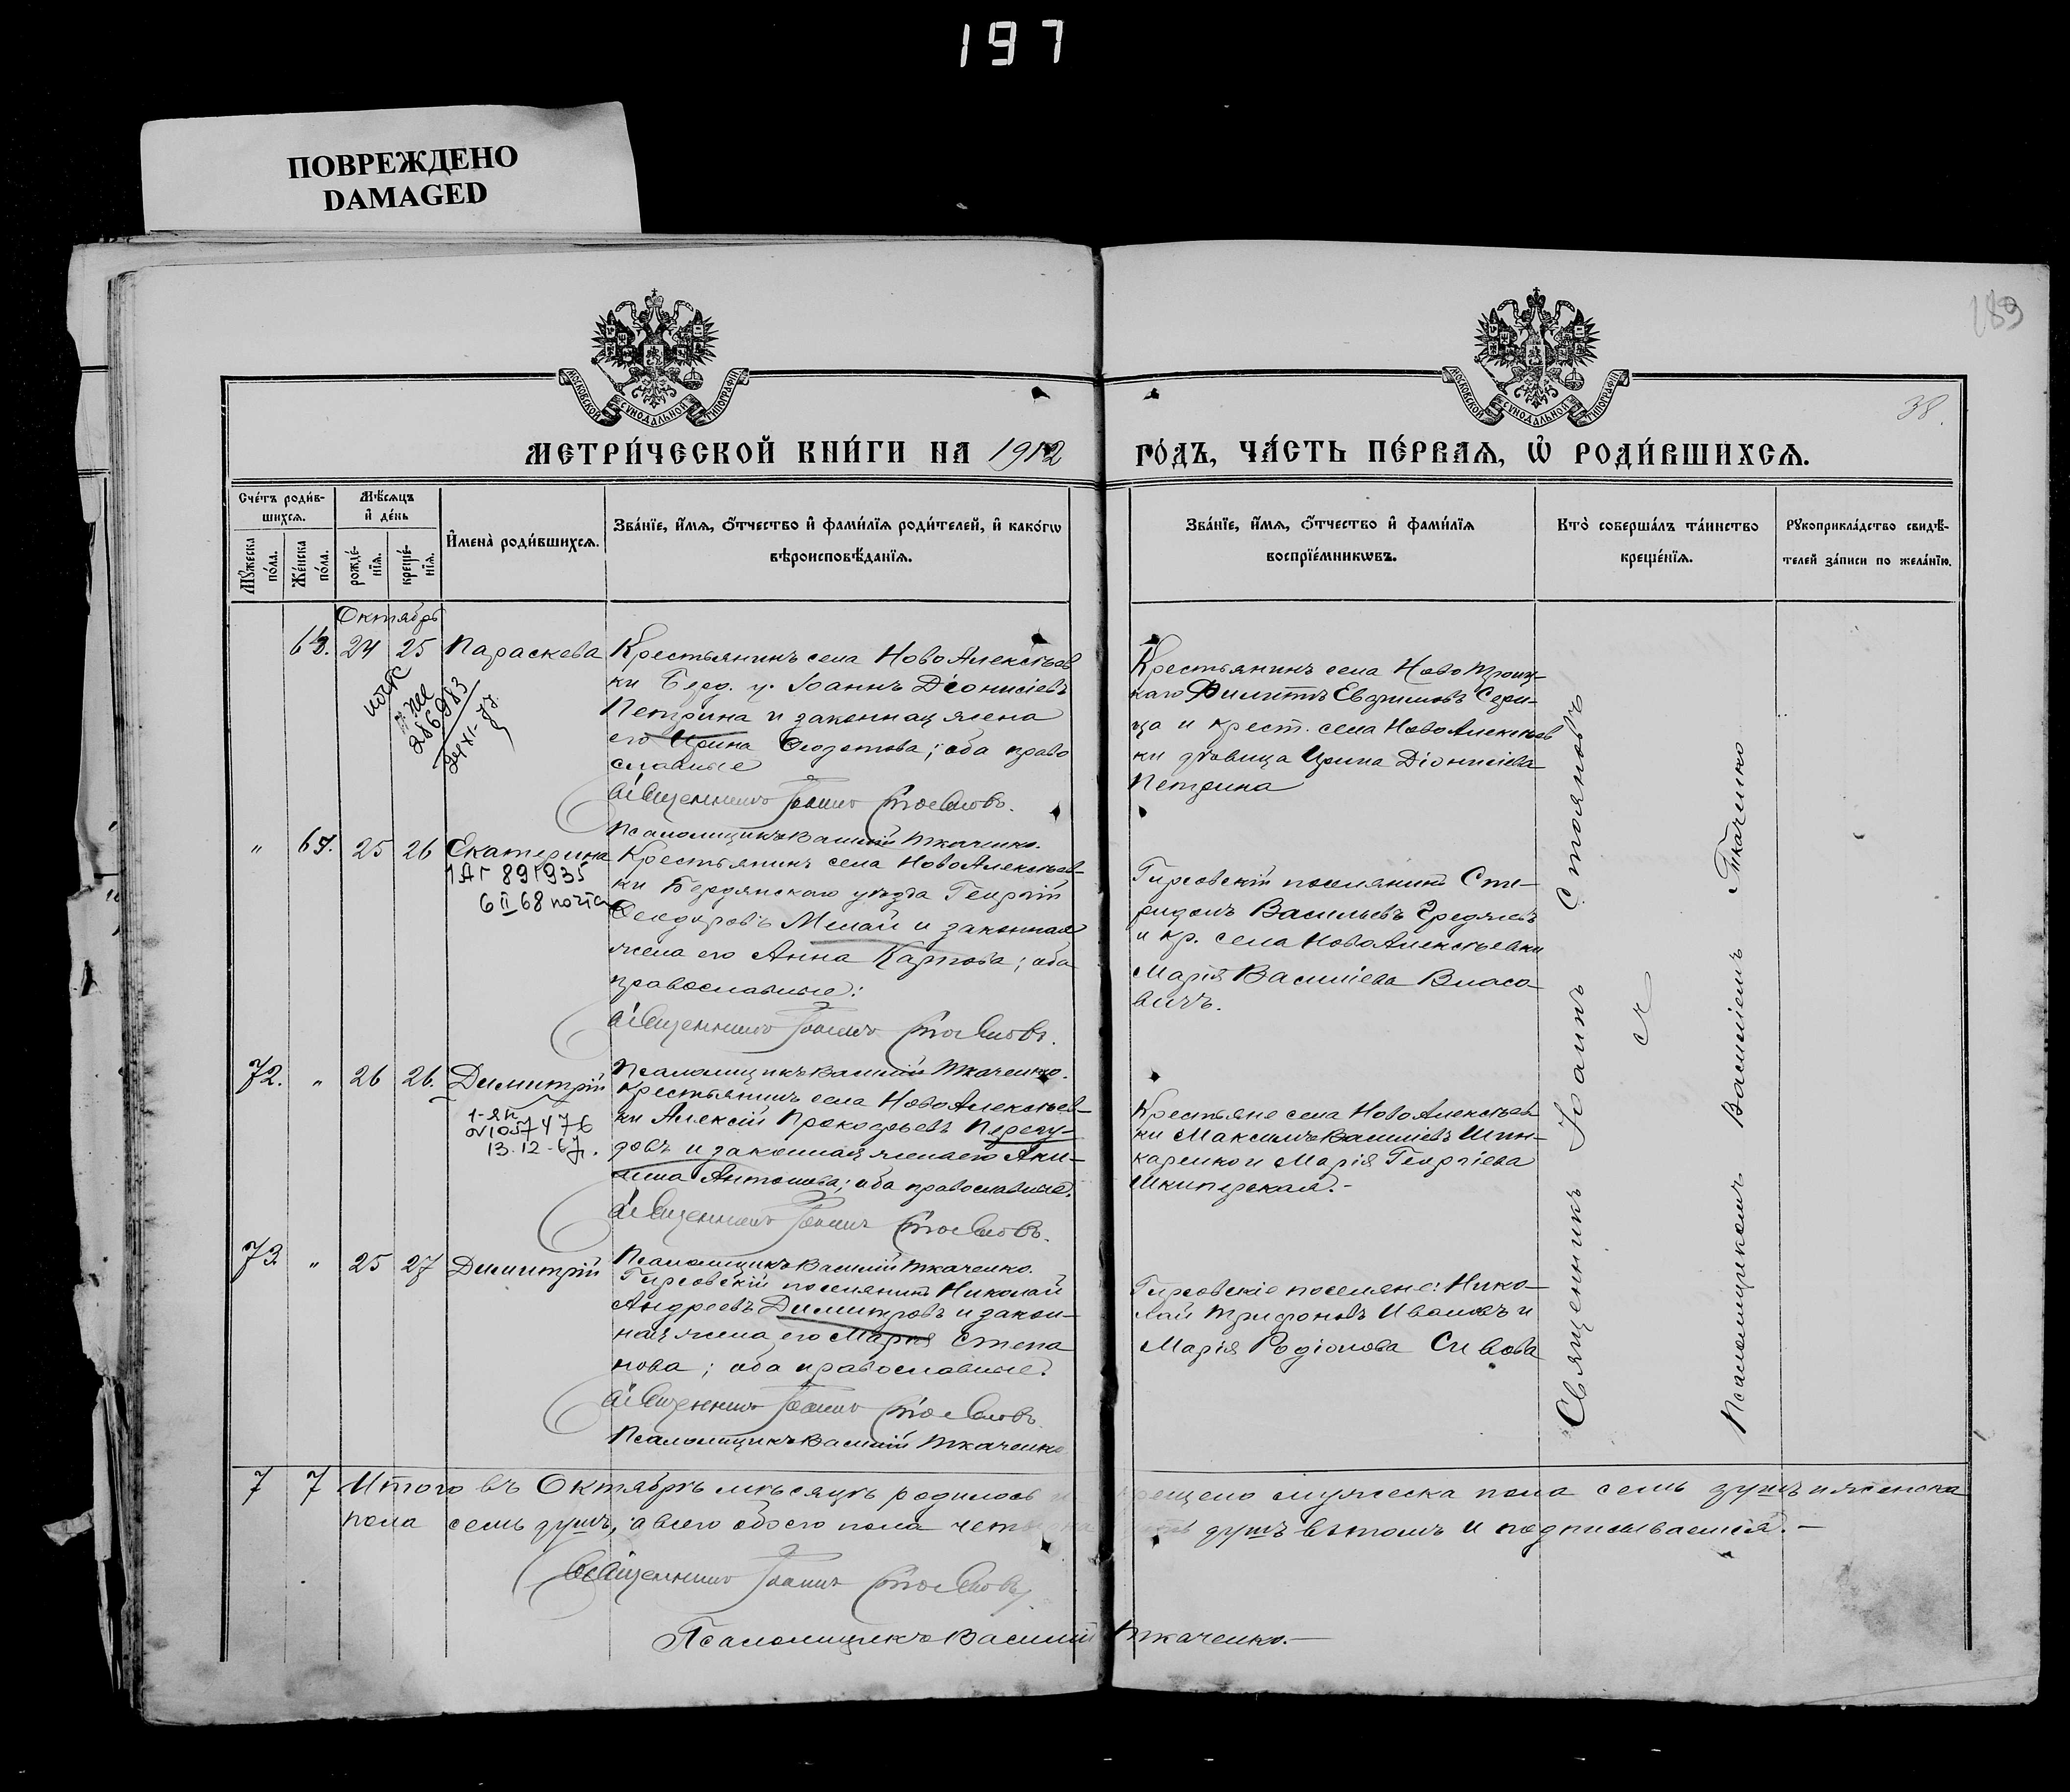 197
ПОВРЕЖДЕНО
DAMAGED
189
38.
МОСКОВСКОЙ СѴНОДАЛЬНОЙ ТИПОГРАФІИ
МОСКОВСКОЙ СѴНОДАЛЬНОЙ ТИПОГРАФІИ
МЕТРИ́ЧЕСКОЙ КНИ́ГИ НА 1912
ГО́ДЪ, ЧА́СТЬ ПЕ́РВАѦ, Ѡ҆ РОДИ́ВШИХСѦ.
Сче́тъ роди́в-
шихсѧ.
Мꙋ́жеска по́ла.
Же́нска по́ла.
Мѣ́сѧцъ
и҆ де́нь
рожде́-
нїѧ.
креще́-
нїѧ.
И҆мена̀ роди́вшихсѧ.
Зва́нїе, и҆́мѧ, ѻ҆́тчество и҆ фами́лїѧ роди́телей, и҆ како́гѡ
вѣроисповѣ́данїѧ.
Зва́нїе, и҆́мѧ, ѻ҆́тчество и҆ фами́лїѧ
воспрїе́мникѡвъ.
Кто̀ соверша́лъ та́инство
креще́нїѧ.
Рꙋкоприкла́дство свидѣ́-
телей за́писи по жела́нїю.
Октябрь
24 25 Параскева
Крестьянинъ села НовоАлексѣев
ки Берд. у. Іоаннъ Діонисіевъ
Петрина и законная жена
его Ирина Федотова; оба право
славные
Священникъ Іоаннъ Стояновъ.
Псаломщикъ Василій Ткаченко.
Крестьянинъ села НовоТроиц-
каго Филиппъ
и крест. села НовоАлексѣев
ки дѣвица Ирина Діонисіева
Петрина
286983
" 25 26 Екатерина
1АГ 891935
6 II 68 почта
Крестьянинъ села НовоАлексѣев-
ки Бердянскаго уѣзда Георгій
Феодоровъ Мелай и законная
жена его Анна Карпова; оба
православные:
Священникъ Іоаннъ Стояновъ.
Псаломщикъ Василій Ткаченко.
Гирсовскій поселянинъ Спи-
ридонъ Васильевъ
и кр. села НовоАлексѣевки
Марія Василіева Власо-
вичъ.
72. " 26 26. Димитрій
13.12-67.
Крестьянинъ села НовоАлексѣев-
ки Алексій Прокофьевъ Перегу-
довъ и законная жена его Аки-
лина Антонова; оба православные.
Священникъ Іоаннъ Стояновъ.
Псаломщикъ Василій Ткаченко.
Крестьяне села НовоАлексѣев-
ки Максимъ Василіевъ Шин-
каренко и Марія Георгіева
Шкиперская.-
73. " 25 27 Димитрій
Гирсовскій поселянинъ Николай
Андреевъ Димитровъ и закон-
ная жена его Марія Степа
нова; оба православные.
Священникъ Іоаннъ Стояновъ.
Псаломщикъ Василій Ткаченко
Гирсовскіе поселяне: Нико-
лай Трифоновъ Ивановъ и
Марія Родіонова Сивова
Священникъ Іоаннъ Стояновъ
съ
Псаломщикомъ Василіемъ Ткаченко
7 7 Итого въ Октябрѣ мѣсяцѣ родилось и крещено мужеска пола семь душъ и женска
пола семь душъ, а всего обоего пола душъ въ томъ и подписываемся.-
Священникъ Іоаннъ Стояновъ.
Псаломщикъ Василій Ткаченко.-